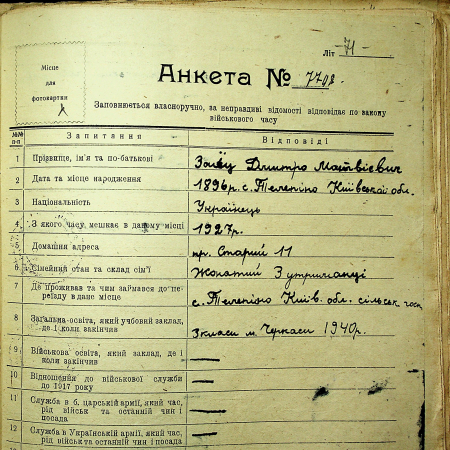 Літ 71
Місце
для
фотокартки
Анкета № 7708.
Заповнюється власноручно, за неправдиві відомості відповідає по закону
військового часу
№№ п-п Запитання Відповіді
1 Прізвище, ім'я та по-батькові Заєць Дмитро Матвієвич
2 Дата та місце народження 1896 р. с. Телепіно Київської обл.
3 Національність Українець
4 З якого часу мешкає в даному місці 1927р.
5 Домашня адреса пр. Старий 11
6 Сімейний стан та склад сім'ї Жонатий 3 утриманці
7 Де проживав та чим займався до пе-
реїзду в дане місце с. Телепіно Київ. обл. сільськ. госп
8 Загальна-освіта, який учбовий заклад,
де і коли закінчив 3 класи м. Черкаси 1940р.
9 Військова освіта, який заклад, де і
коли закінчив —
10 Відношення до військової служби
до 1917 року —
11 Служба в б. царській армії, який час,
рід військ та останній чин і
посада —
12 Служба в Українській армії, який час,
рід військ та останній чин і посада —